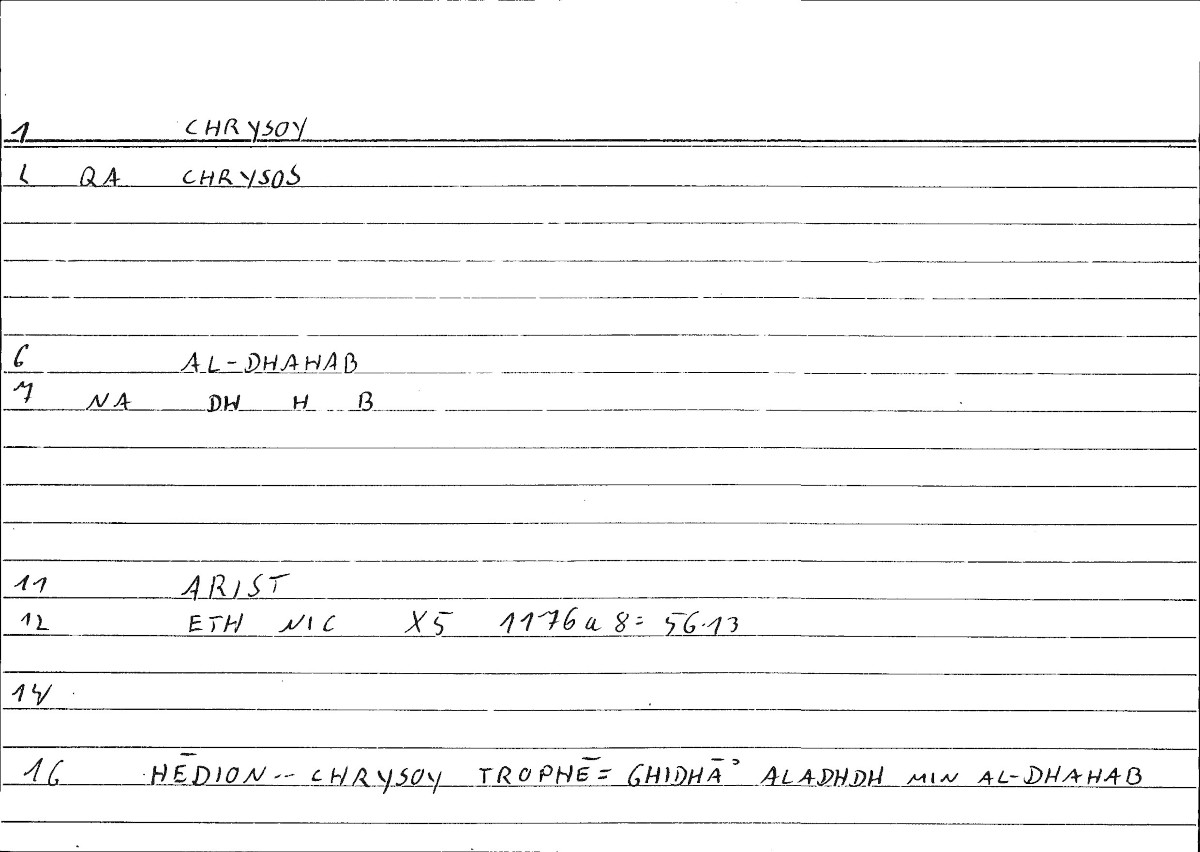 1 CHRYSOY
2 QA CHRYSOS
6 AL-DHAHAB
7 NA DH H B
11 ARIST
12 ETH NIC X5 1176a 8= 56.13
14
16 HĒDION-- CHRYSOY TROPHĒ= GHIDHĀʾ ALADHDH MIN AL-DHAHAB